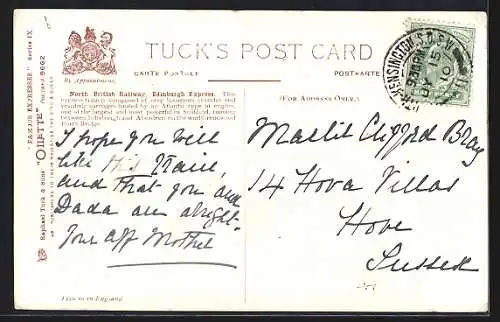 TUCK'S POST CARD
By Appointment.
CARTE POSTALE
POSTKARTE
(FOR ADDRESS ONLY.)
Raphael Tuck & Sons' "OILETTE" Postcard 9662
"FAMOUS EXPRESSES" Series IX
North British Railway. Edinburgh Express. This
express train is composed of very luxurious corridor and
vestibule carriages hauled by an Atlantic type of engine,
one of the largest and most powerful in Scotland, running
between Edinburgh and Aberdeen via the world-renowned
Forth Bridge.
I hope you will
like this train,
and that you and
Dada are alright.
Your aff Mother
Master Clifford Bray
14 Hova Villas
Hove
Sussex
KENSINGTON S.O. S.W
15
10